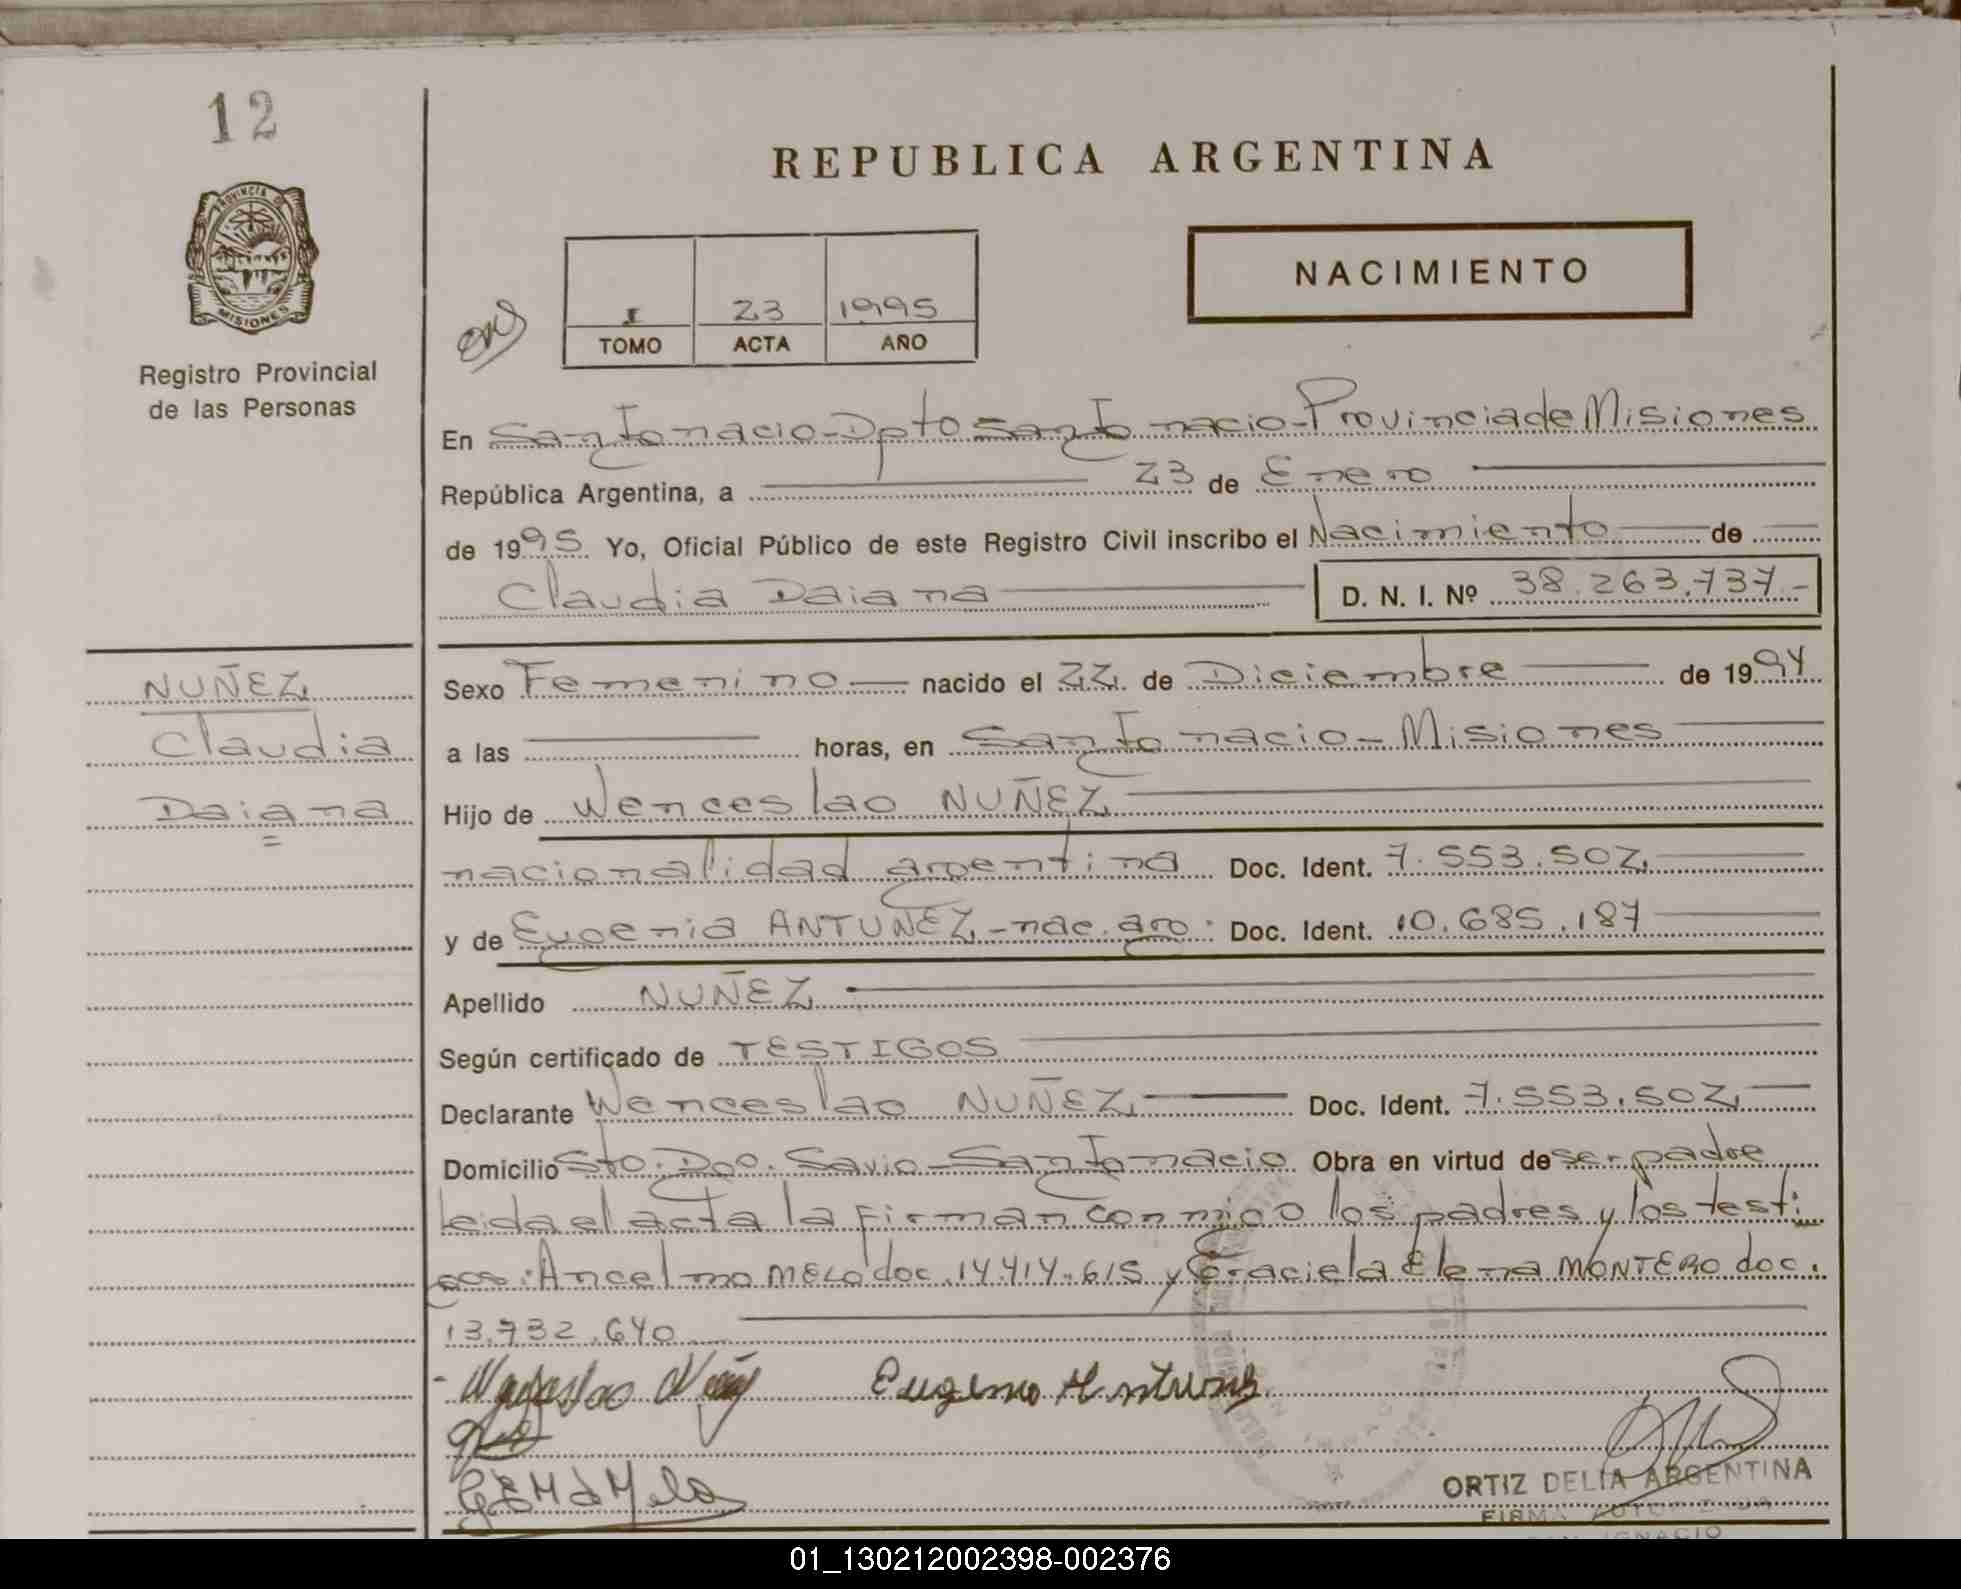 12
PROVINCIA D
MISIONES
Registro Provincial
de las Personas
REPUBLICA ARGENTINA
I 23 1995
TOMO ACTA AÑO
NACIMIENTO
En San Ignacio-Dpto San Ignacio-Provincia de Misiones
República Argentina, a 23 de Enero
de 1995 Yo, Oficial Público de este Registro Civil inscribo el Nacimiento de
Claudia Daiana D. N. I. Nº 38.263.737-
NUÑEZ
Claudia
Daiana
Sexo Femenino nacido el 22 de Diciembre de 1994
a las horas, en San Ignacio-Misiones
Hijo de Wenceslao NUÑEZ
nacionalidad argentina Doc. Ident. 7.553.502
y de Eugenia ANTUNEZ-nac. arg. Doc. Ident. 10.685.187
Apellido NUÑEZ
Según certificado de TESTIGOS
Declarante Wenceslao NUÑEZ Doc. Ident. 7.553.502
Domicilio Sto. Dgo. Savio-San Ignacio Obra en virtud de ser padre
leida el acta la firman conmigo los padres y los testi
gos: Ancelmo MELO doc. 14.414.615 y Graciela Elena MONTERO doc.
13.732.640
ORTIZ DELIA ARGENTINA
FIRMA AUTORIZADA
SAN IGNACIO
01_130212002398-002376